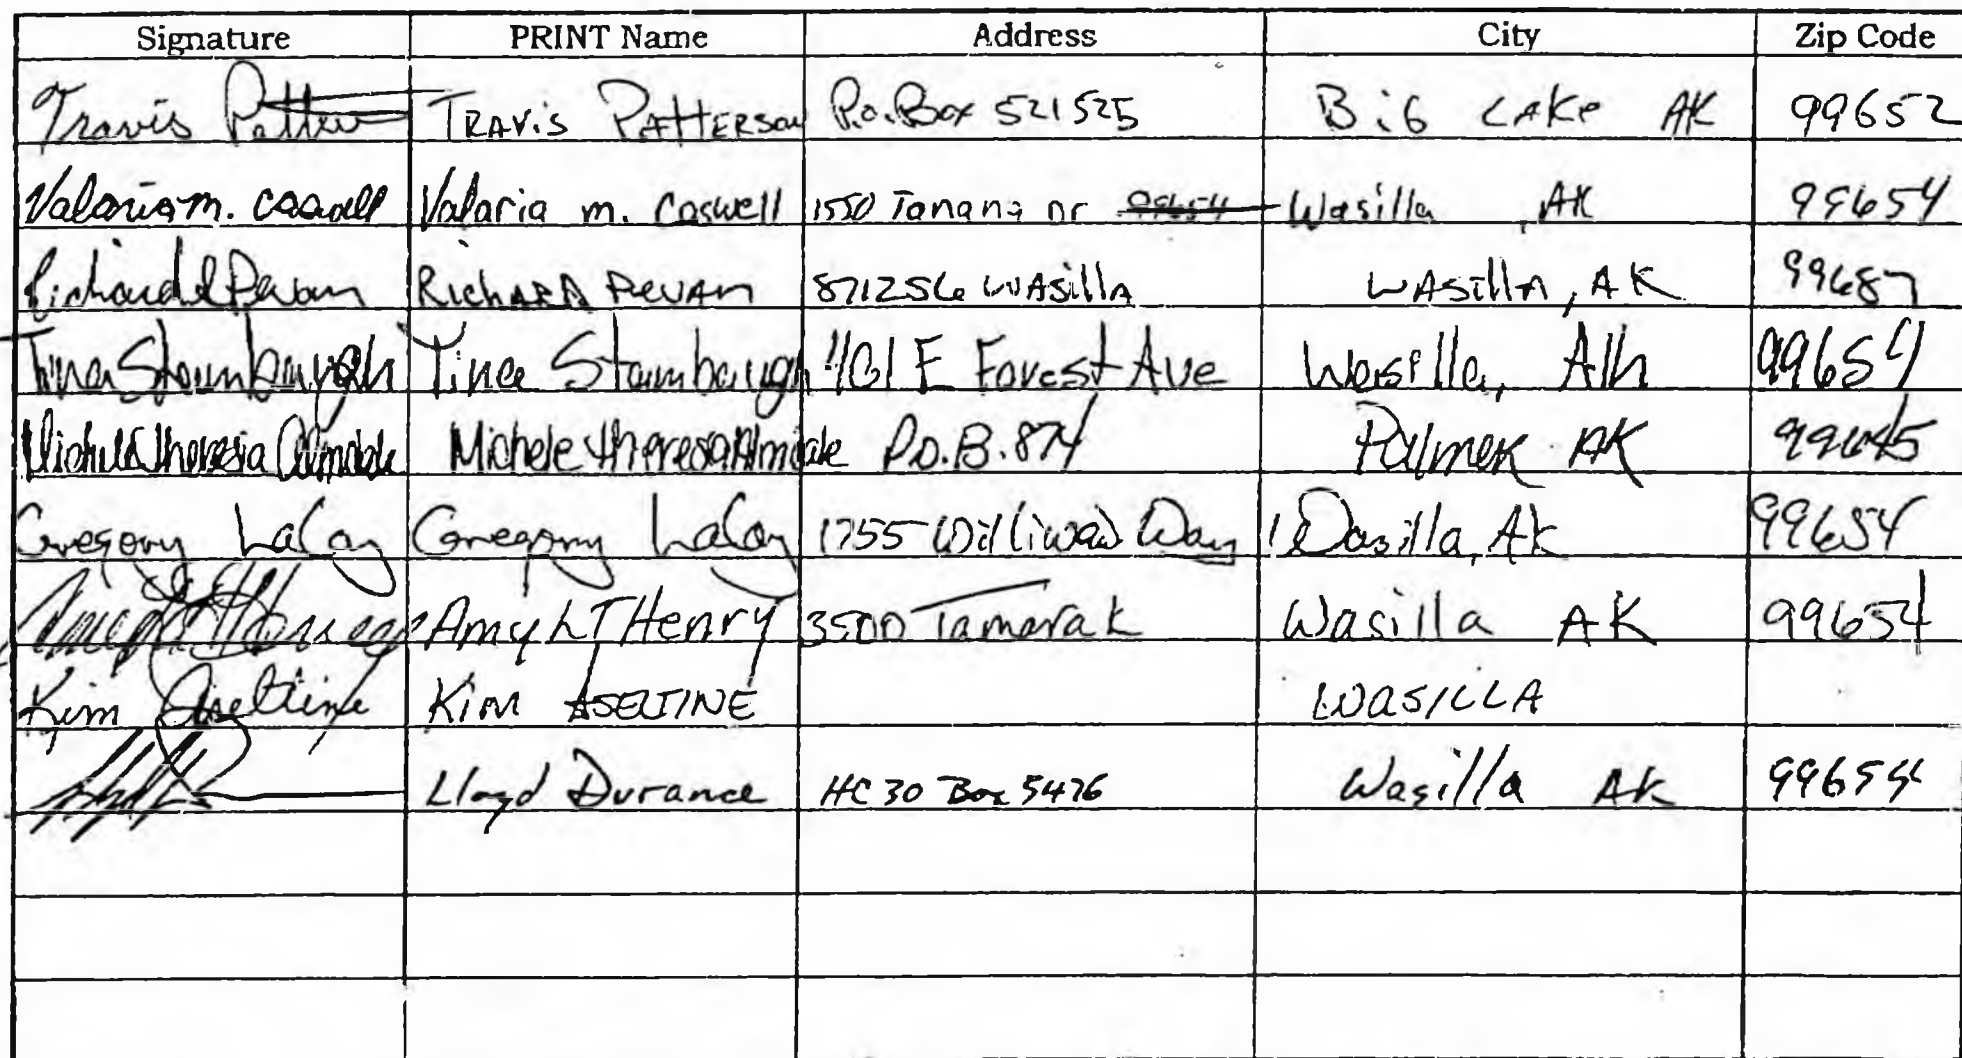 Signature PRINT Name Address City Zip Code
Travis TRAVIS PATTERSON P.O. Box 521525 BiG LAKe AK 99652
Valaria m. Caswell Valaria m. Caswell 1550 Tanana Dr 99654 Wasilla, AK 99654
Richard RichARD DeVAN 871256 WASillA WASillA, AK 99687
Tina Stambaugh Tina Stambaugh 401 E Forest Ave Wasilla, AK 99654
Michele Theresa Michele Theresa P.O.B. 874 Palmer AK 99645
Gregory LaCoy Gregory LaCoy 1755 Williwaw Way Wasilla, AK 99654
Amy L T Henry 3500 Tamarak Wasilla AK 99654
Kim Aseltine Kim ASELTINE WASILLA
Lloyd Durance HC 30 Box 5476 Wasilla AK 99654